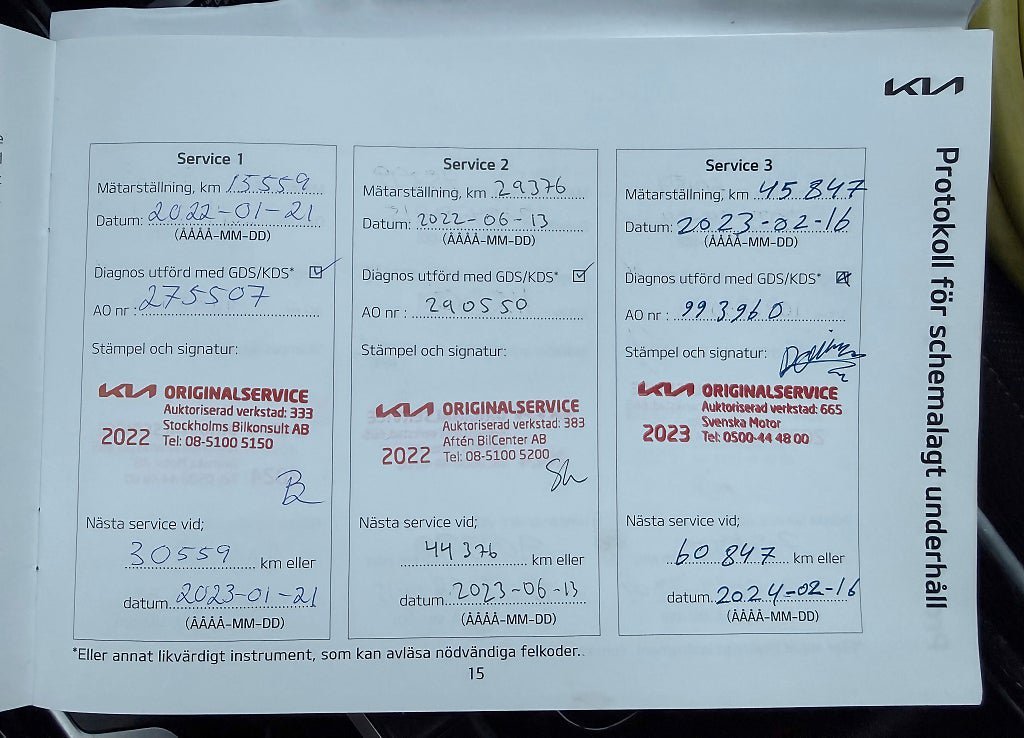 KIA
Protokoll för schemalagt underhåll
Service 1
Mätarställning, km 15559
Datum: 2022-01-21
(ÅÅÅÅ-MM-DD)
Diagnos utförd med GDS/KDS*
AO nr : 275507
Stämpel och signatur:
KIA ORIGINALSERVICE
Auktoriserad verkstad: 333
Stockholms Bilkonsult AB
2022 Tel: 08-5100 5150
Nästa service vid;
30559 km eller
datum 2023-01-21
(ÅÅÅÅ-MM-DD)
Service 2
Mätarställning, km 29376
Datum: 2022-06-13
(ÅÅÅÅ-MM-DD)
Diagnos utförd med GDS/KDS*
AO nr : 290550
Stämpel och signatur:
KIA ORIGINALSERVICE
Auktoriserad verkstad: 383
Aftén BilCenter AB
2022 Tel: 08-5100 5200
Nästa service vid;
44376 km eller
datum 2023-06-13
(ÅÅÅÅ-MM-DD)
Service 3
Mätarställning, km 45847
Datum: 2023-02-16
(ÅÅÅÅ-MM-DD)
Diagnos utförd med GDS/KDS*
AO nr : 993960
Stämpel och signatur:
KIA ORIGINALSERVICE
Auktoriserad verkstad: 665
Svenska Motor
2023 Tel: 0500-44 48 00
Nästa service vid;
60847 km eller
datum. 2024-02-16
(ÅÅÅÅ-MM-DD)
*Eller annat likvärdigt instrument, som kan avläsa nödvändiga felkoder.
15